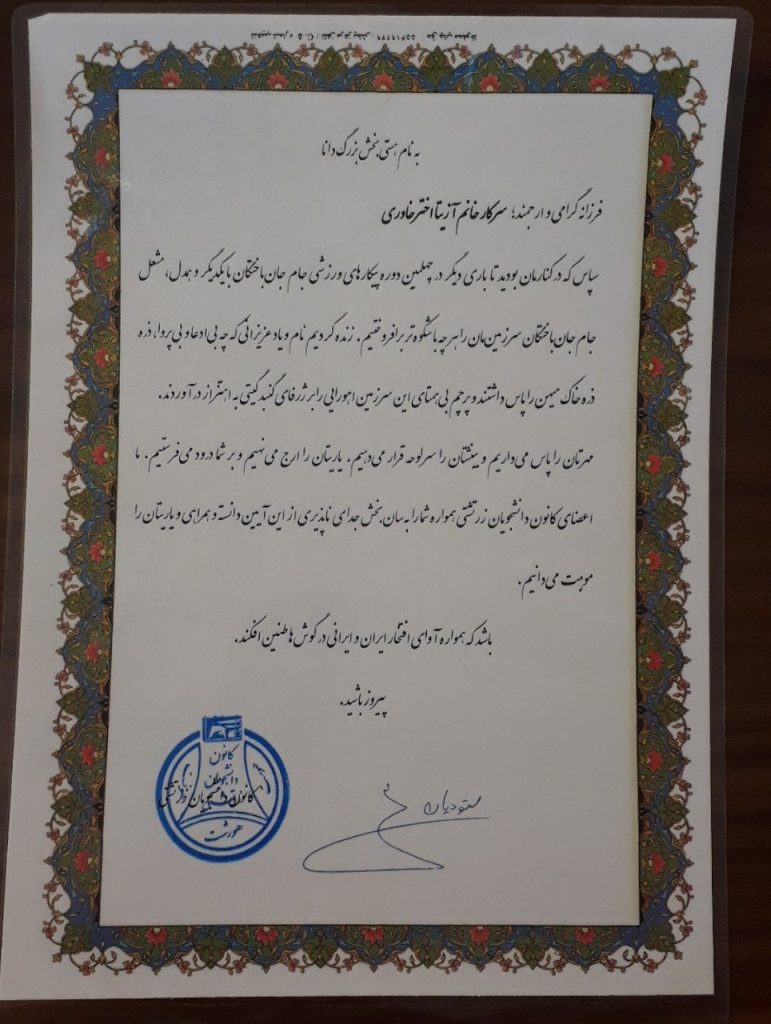 به نام هستی بخش بزرگ دانا
فرزانه گرامی و ارجمند؛ سرکار خانم آزیتا اخترخاوری
سپاس که در کنارمان بودید تا باری دیگر در چهلمین دوره پیکارهای ورزشی جام جان باختگان با یکدیگر و همدل، مشعل
جام جان باختگان سرزمین مان را هر چه باشکوه تر برافروختیم. زنده کردیم نام و یاد عزیزانی که چه بی ادعا و بی پروا، ذره
ذره خاک میهن را پاس داشتند و پرچم بی همتای این سرزمین اهورایی را بر ژرفای گنبد گیتی به اهتزاز درآوردند.
مهرتان را پاس می داریم و بینشتان را سرلوحه قرار می دهیم. یاریتان را ارج می نهیم و بر شما درود می فرستیم. ما
اعضای کانون دانشجویان زرتشتی همواره شما را به سان بخش جدای ناپذیری از این آیین دانسته و همراهی و یاریتان را
موهبت می دانیم.
باشد که همواره آوای افتخار ایران و ایرانی در گوش ها طنین افکند.
پیروز باشید.
کانون
دانشجویان
کانون دانشجویان زرتشتی
هورشت
ستودیان